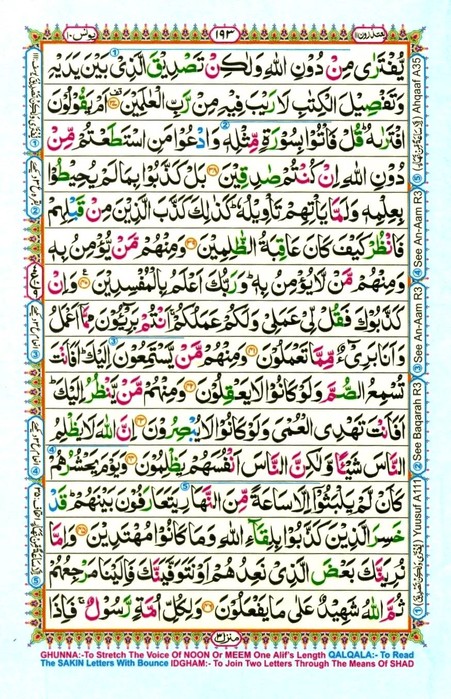 يونس ١٠
١٩٣
يعتذرون ١١
يُّفْتَرٰى مِنْ دُوْنِ اللّٰهِ وَلٰكِنْ تَصْدِيْقَ الَّذِىْ بَيْنَ يَدَيْهِ
وَتَفْصِيْلَ الْكِتٰبِ لَا رَيْبَ فِيْهِ مِنْ رَّبِّ الْعٰلَمِيْنَ اَمْ يَقُوْلُوْنَ
افْتَرٰىهُ قُلْ فَاْتُوْا بِسُوْرَةٍ مِّثْلِهٖ وَادْعُوْا مَنِ اسْتَطَعْتُمْ مِّنْ
دُوْنِ اللّٰهِ اِنْ كُنْتُمْ صٰدِقِيْنَ ﴿٣٨﴾ بَلْ كَذَّبُوْا بِمَا لَمْ يُحِيْطُوْا
بِعِلْمِهٖ وَلَمَّا يَاْتِهِمْ تَاْوِيْلُهٗ كَذٰلِكَ كَذَّبَ الَّذِيْنَ مِنْ قَبْلِهِمْ
فَانْظُرْ كَيْفَ كَانَ عَاقِبَةُ الظّٰلِمِيْنَ ﴿٣٩﴾ وَمِنْهُمْ مَّنْ يُّؤْمِنُ بِهٖ
وَمِنْهُمْ مَّنْ لَّا يُؤْمِنُ بِهٖ وَرَبُّكَ اَعْلَمُ بِالْمُفْسِدِيْنَ ﴿٤٠﴾ وَاِنْ
كَذَّبُوْكَ فَقُلْ لِّىْ عَمَلِىْ وَلَكُمْ عَمَلُكُمْ اَنْتُمْ بَرِيْٓـُٔوْنَ مِمَّا اَعْمَلُ
وَاَنَا بَرِىْٓءٌ مِّمَّا تَعْمَلُوْنَ ﴿٤١﴾ وَمِنْهُمْ مَّنْ يَّسْتَمِعُوْنَ اِلَيْكَ اَفَاَنْتَ
تُسْمِعُ الصُّمَّ وَلَوْ كَانُوْا لَا يَعْقِلُوْنَ ﴿٤٢﴾ وَمِنْهُمْ مَّنْ يَّنْظُرُ اِلَيْكَ
اَفَاَنْتَ تَهْدِى الْعُمْىَ وَلَوْ كَانُوْا لَا يُبْصِرُوْنَ ﴿٤٣﴾ اِنَّ اللّٰهَ لَا يَظْلِمُ
النَّاسَ شَيْـًٔا وَّلٰكِنَّ النَّاسَ اَنْفُسَهُمْ يَظْلِمُوْنَ ﴿٤٤﴾ وَيَوْمَ يَحْشُرُهُمْ
كَاَنْ لَّمْ يَلْبَثُوْٓا اِلَّا سَاعَةً مِّنَ النَّهَارِ يَتَعَارَفُوْنَ بَيْنَهُمْ قَدْ
خَسِرَ الَّذِيْنَ كَذَّبُوْا بِلِقَآءِ اللّٰهِ وَمَا كَانُوْا مُهْتَدِيْنَ ﴿٤٥﴾ وَاِمَّا
نُرِيَنَّكَ بَعْضَ الَّذِىْ نَعِدُهُمْ اَوْ نَتَوَفَّيَنَّكَ فَاِلَيْنَا مَرْجِعُهُمْ
ثُمَّ اللّٰهُ شَهِيْدٌ عَلٰى مَا يَفْعَلُوْنَ ﴿٤٦﴾ وَلِكُلِّ اُمَّةٍ رَّسُوْلٌ فَاِذَا
منزل ٣
① Yuusuf A111
② See Baqarah R3
③ See An-Aam R3
④ See An-Aam R3
⑤ Ahqaaf A35
GHUNNA:-To Stretch The Voice Of NOON Or MEEM One Alif's Length QALQALA:- To Read
The SAKIN Letters With Bounce IDGHAM:- To Join Two Letters Through The Means Of SHAD